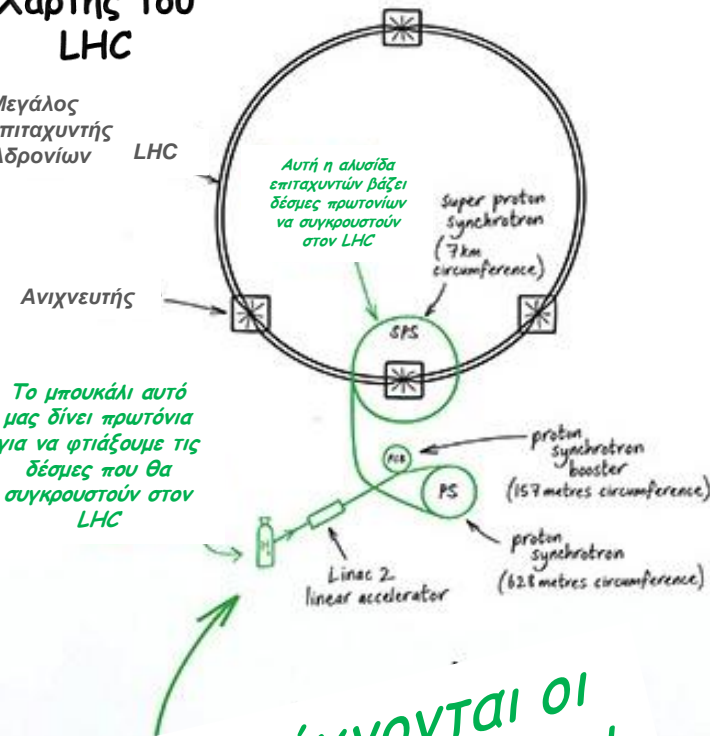 Χάρτης του
LHC
Μεγάλος
Επιταχυντής
Αδρονίων LHC
Αυτή η αλυσίδα
επιταχυντών βάζει
δέσμες πρωτονίων
να συγκρουστούν
στον LHC
super proton
synchrotron
(7km
circumference)
Ανιχνευτής
SPS
Το μπουκάλι αυτό
μας δίνει πρωτόνια
για να φτιάξουμε τις
δέσμες που θα
συγκρουστούν στον
LHC
proton
synchrotron
booster
(157 metres circumference)
PSB
PS
proton
synchrotron
(628 metres circumference)
Linac 2
linear accelerator
οι